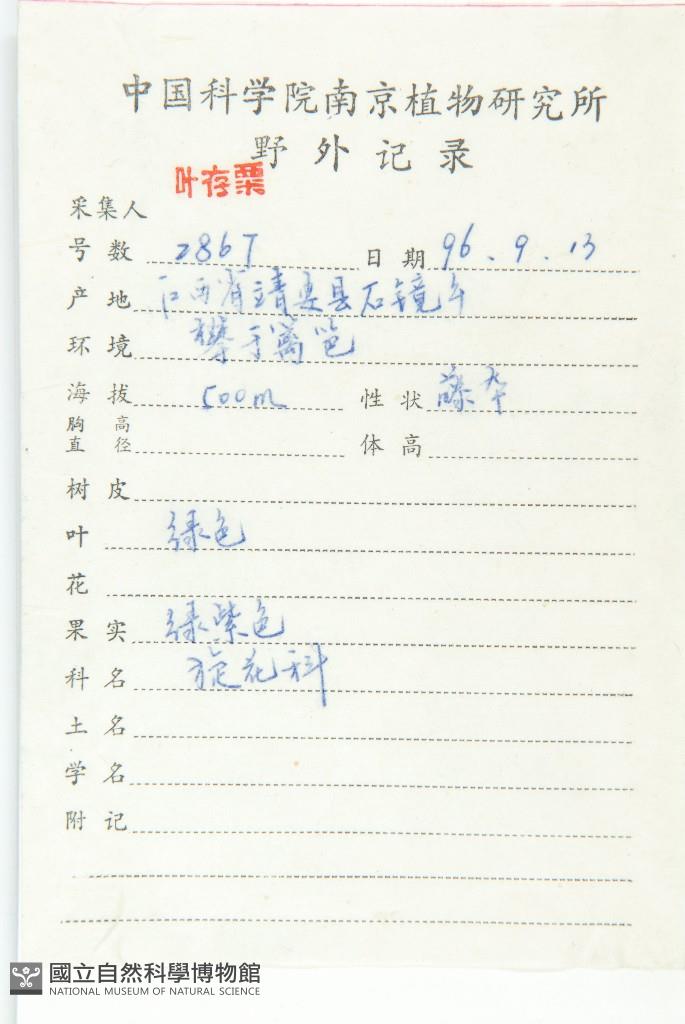 中国科学院南京植物研究所
野外记录
叶存栗
采集人
号数 2867 日期 96.9.13
产地 江西省靖安县石镜乡
环境 攀于篱笆
海拔 500m 性状 藤本
胸高直径 体高
树皮
叶 绿色
花
果实 绿紫色
科名 旋花科
土名
学名
附记
國立自然科學博物館
NATIONAL MUSEUM OF NATURAL SCIENCE